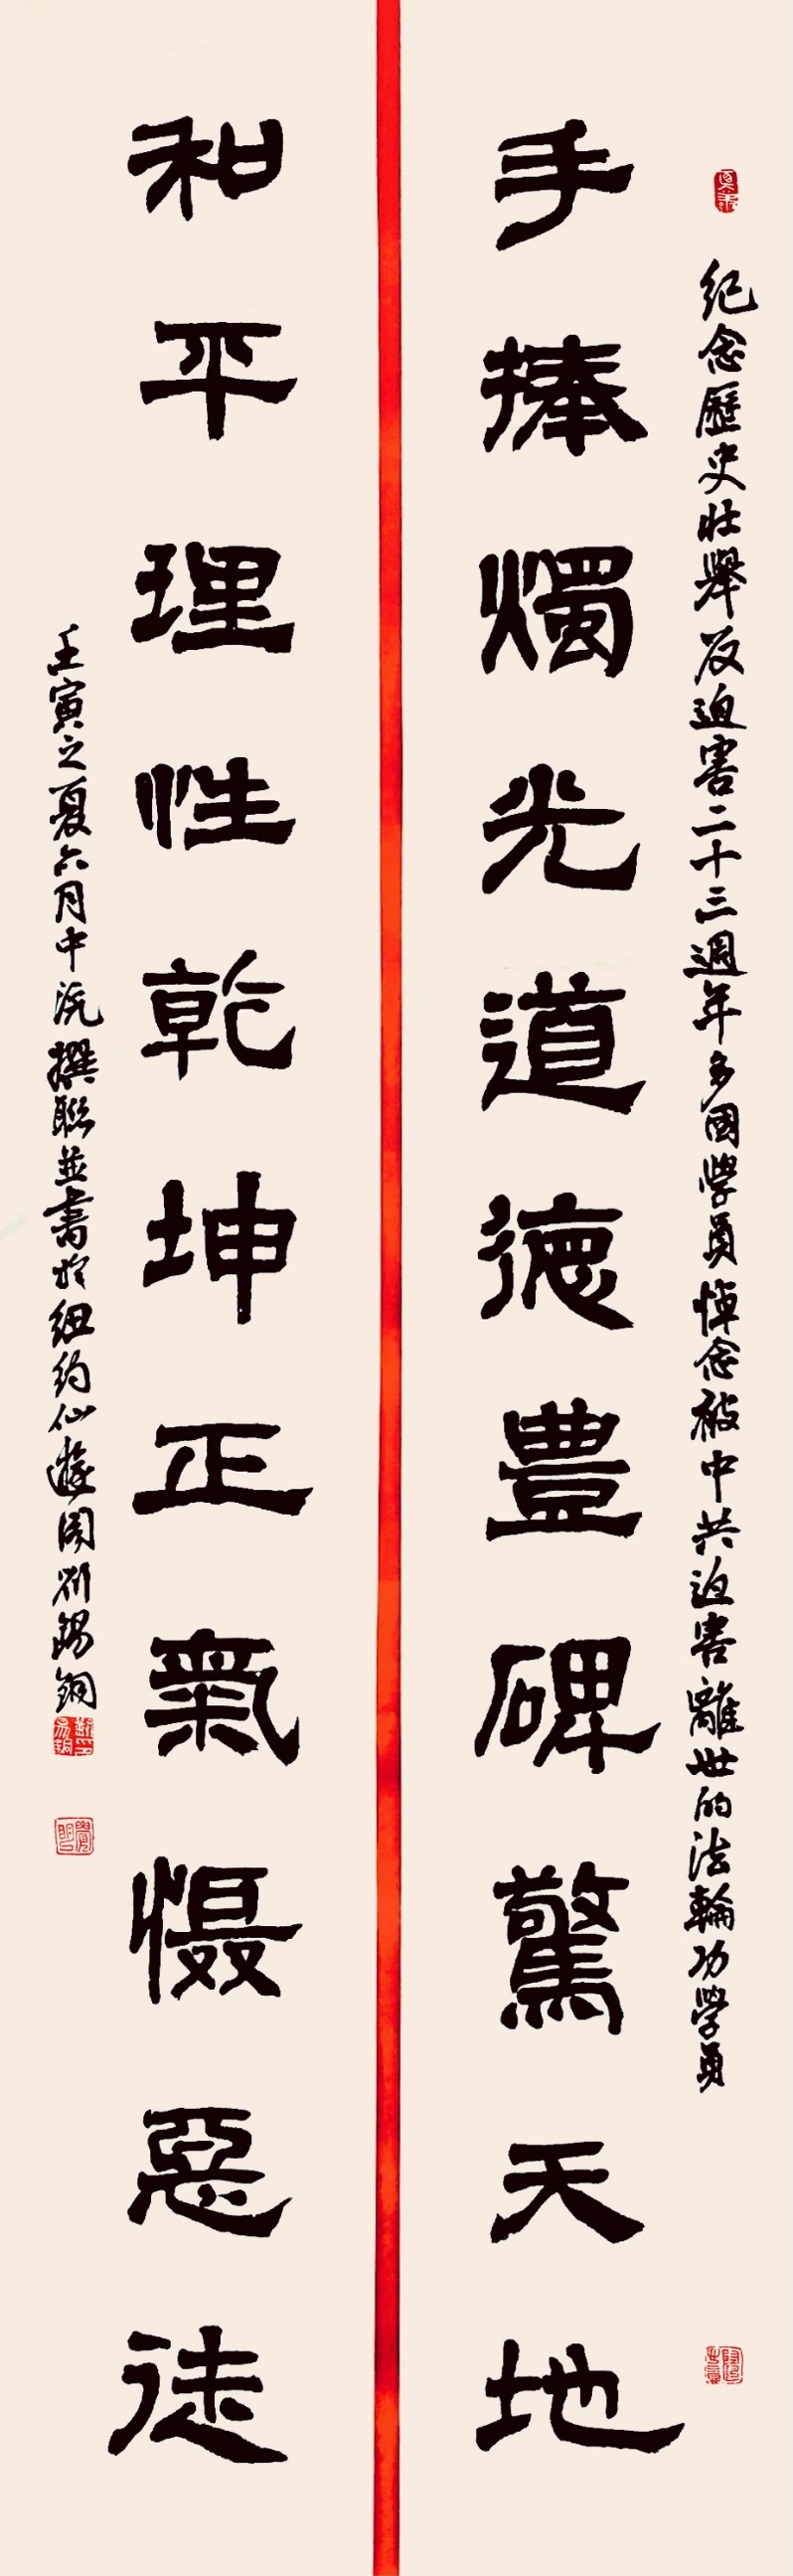 紀念歷史壯舉反迫害二十三週年多國學員悼念被中共迫害離世的法輪功學員
手捧燭光道德豐碑驚天地
和平理性乾坤正氣慑惡徒
壬寅之夏六月中浣撰聯並書於紐約仙遊園劉錫銅